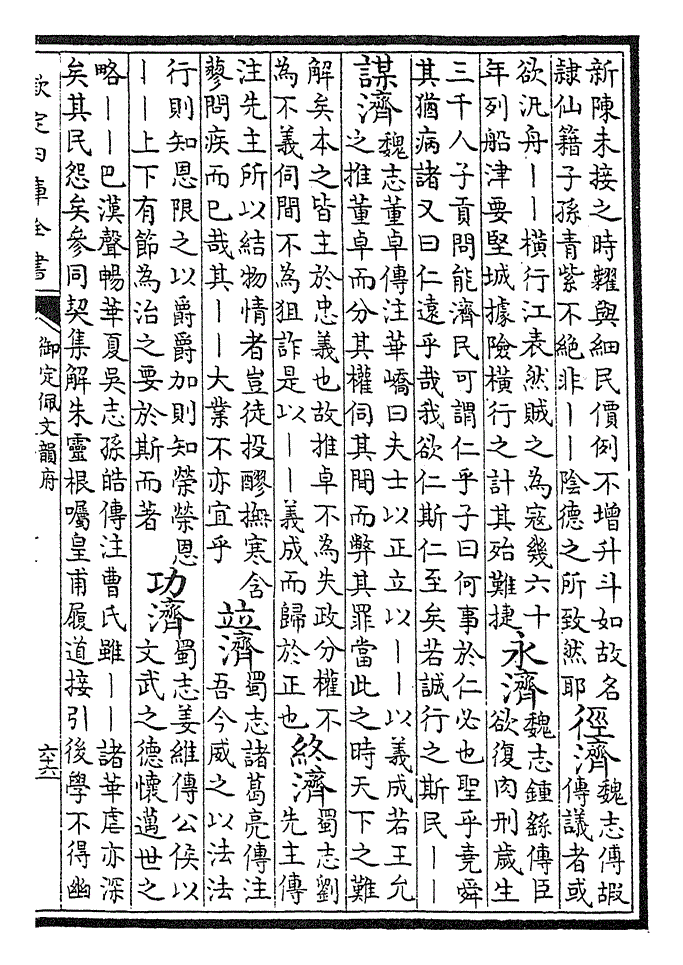 新陳未接之時糶與細民價例不增升斗如故名
隷仙籍子孫青紫不絶非——陰德之所致然耶
徑濟
魏志傅嘏
傳議者或
欲汎舟——橫行江表然賊之為寇幾六十
年列船津要堅城據險橫行之計其殆難捷
永濟
魏志鍾繇傳臣
欲復肉刑歲生
三千人子貢問能濟民可謂仁乎子曰何事於仁必也聖乎堯舜
其猶病諸又曰仁遠乎哉我欲仁斯仁至矣若誠行之斯民——
謀濟
魏志董卓傳注華嶠曰夫士以正立以——以義成若王允
之推董卓而分其權伺其間而弊其罪當此之時天下之難
解矣本之皆主於忠義也故推卓不為失政分權不
為不義伺間不為狙詐是以——義成而歸於正也
終濟
蜀志劉
先主傳
注先主所以結物情者豈徒投醪撫寒含
蓼問疾而已哉其——大業不亦宜乎
竝濟
蜀志諸葛亮傳注
吾今威之以法法
行則知恩限之以爵爵加則知榮榮恩
——上下有節為治之要於斯而著
功濟
蜀志姜維傳公侯以
文武之德懷邁世之
略——巴漢聲暢華夏吳志孫皓傳注曹氏雖——諸華虐亦深
矣其民怨矣參同契集解朱靈根囑皇甫履道接引後學不得幽
欽定四庫全書
御定佩文韻府
六十六